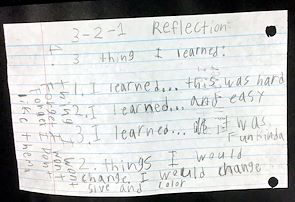 3-2-1 Reflection:
1.
3 thing I learned:
1. I learned... this was hard
2. I learned... and easy
3. I learned... it was
fun kinda
2. things I would
change. I would change
size and color
things I wont